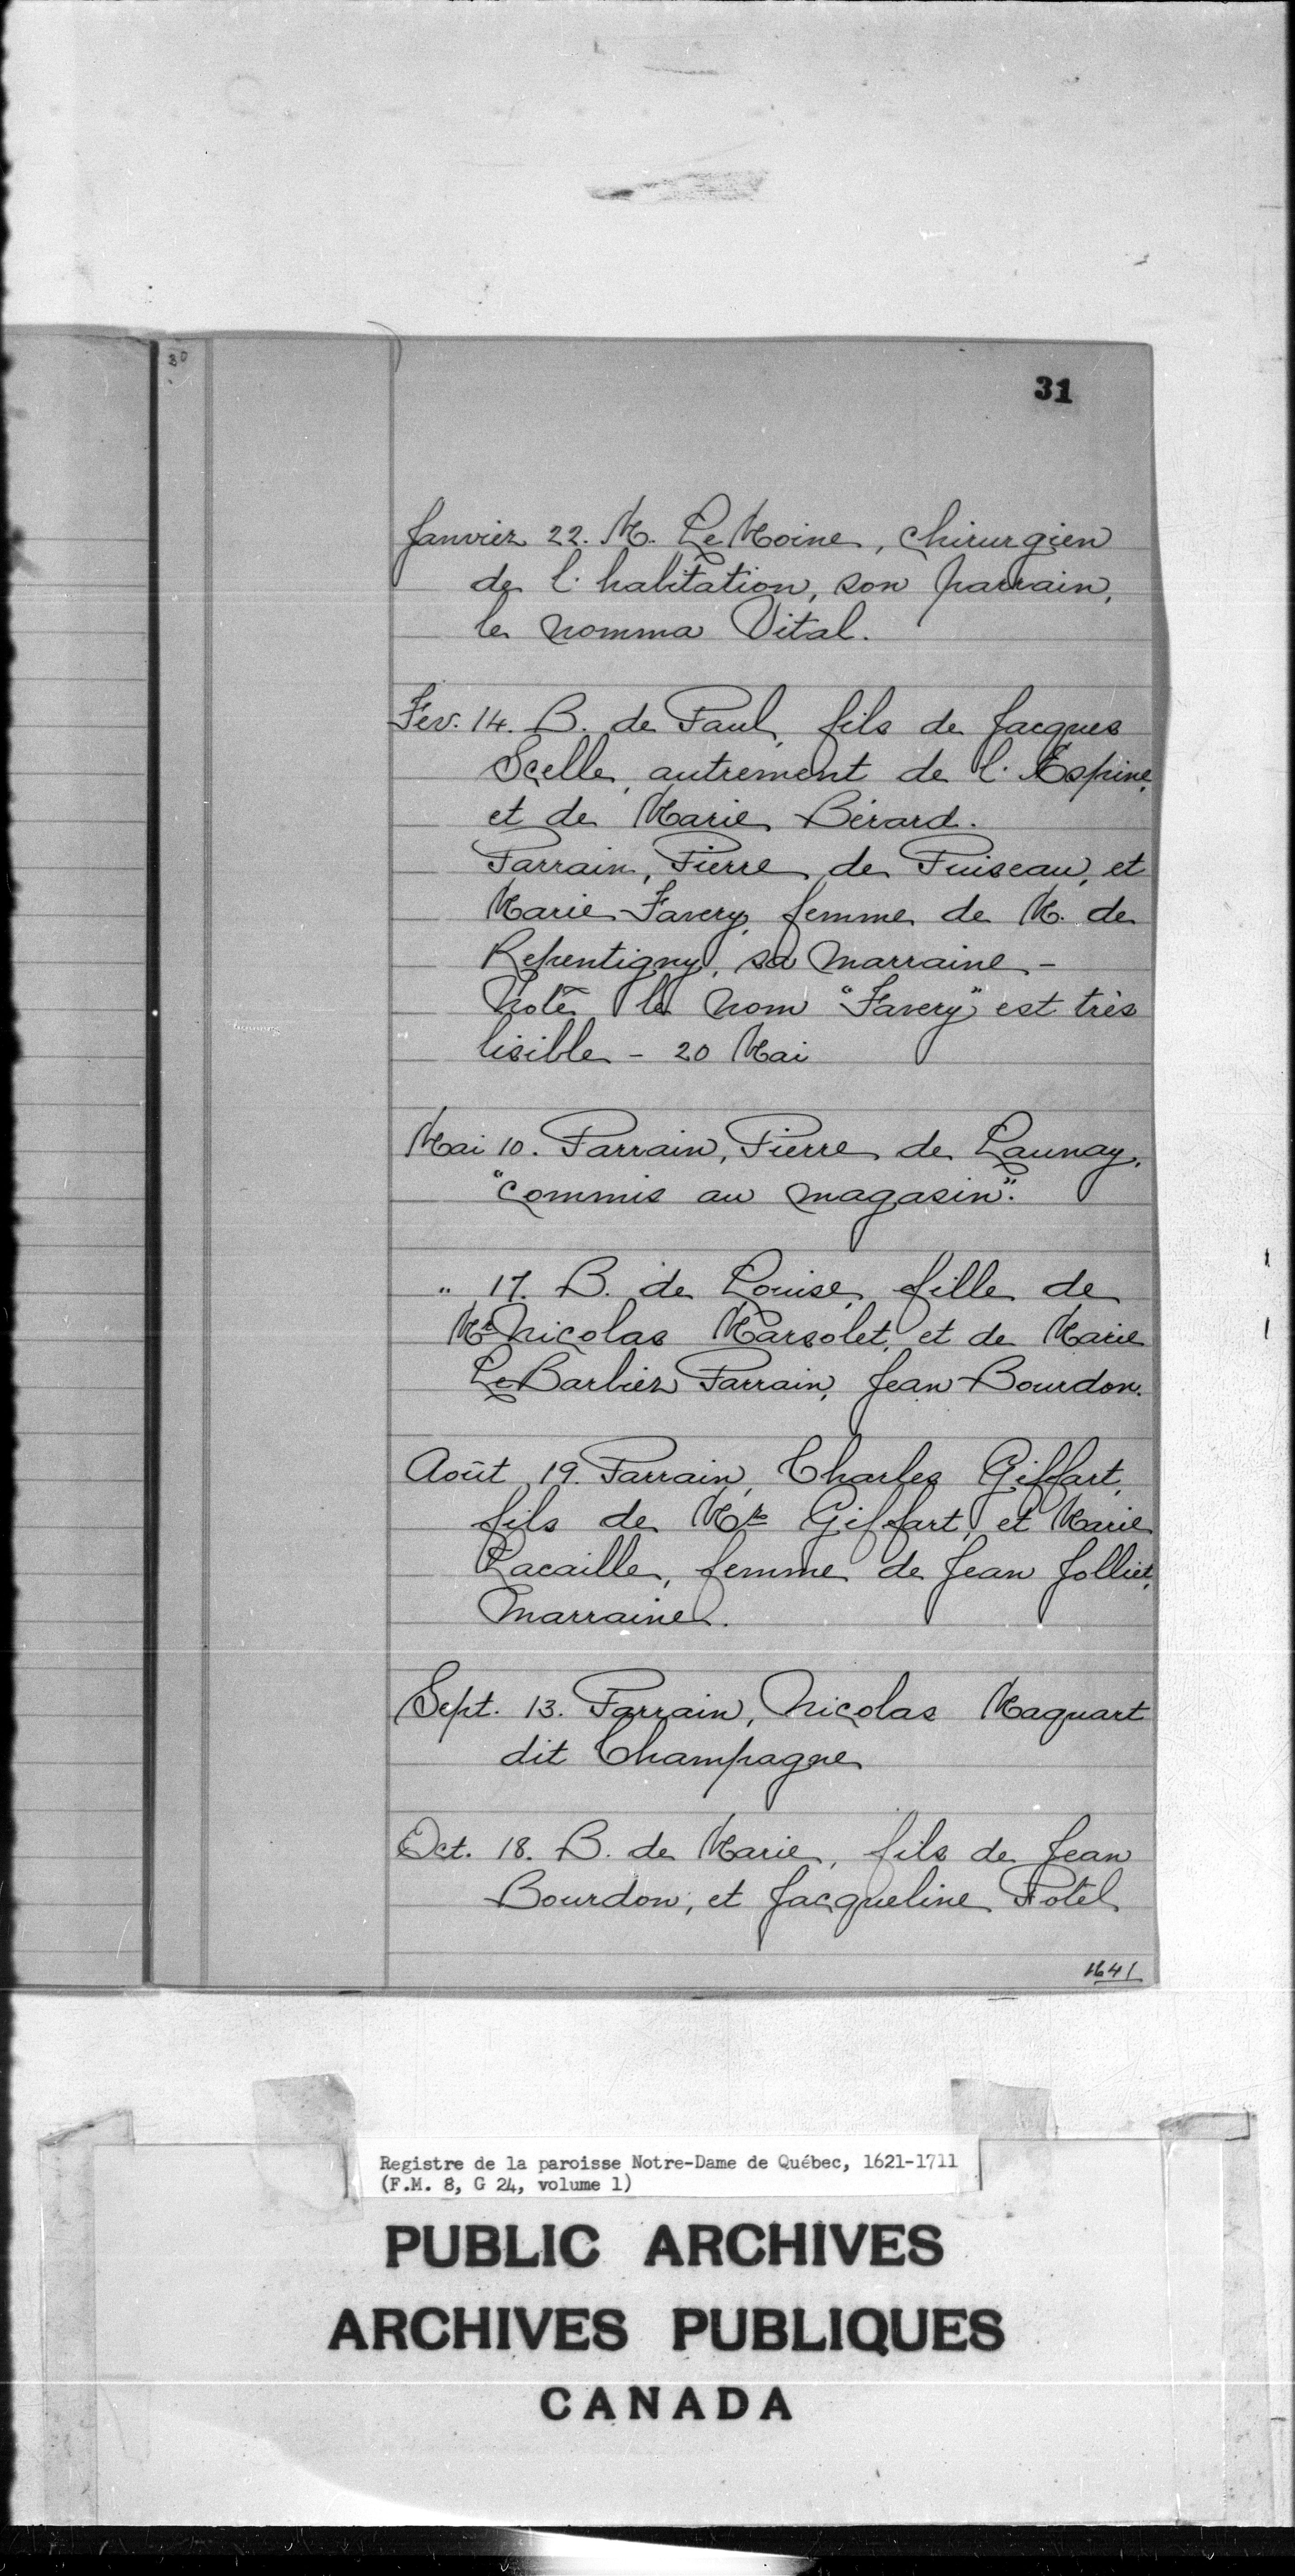 30
31
Janvier 22. M. LeMoine, chirurgien
de l'habitation, son parrain,
le nomma Vital.
Fev. 14. B. de Paul, fils de Jacques
Scelle, autrement de l'Espine,
et de Marie Bérard.
Parrain, Pierre de Puiseau, et
Marie Favery, femme de M. de
Repentigny, sa marraine -
Note le nom "Favery" est très
lisible - 20 Mai
Mai 10. Parrain, Pierre de Launay,
"commis au magasin".
" 17. B. de Louise, fille de
Mr Nicolas Marsolet, et de Marie
LeBarbier Parrain, Jean Bourdon.
Août 19. Parrain, Charles Giffart,
fils de Mr Giffart, et Marie
Racaille, femme de Jean Jolliet,
Marraine.
Sept. 13. Parrain, Nicolas Maquart
dit Champagne
Oct. 18. B. de Marie, fils de Jean
Bourdon, et Jacqueline Potel
1641
Registre de la paroisse Notre-Dame de Québec, 1621-1711
(F.M. 8, G 24, volume 1)
PUBLIC ARCHIVES
ARCHIVES PUBLIQUES
CANADA